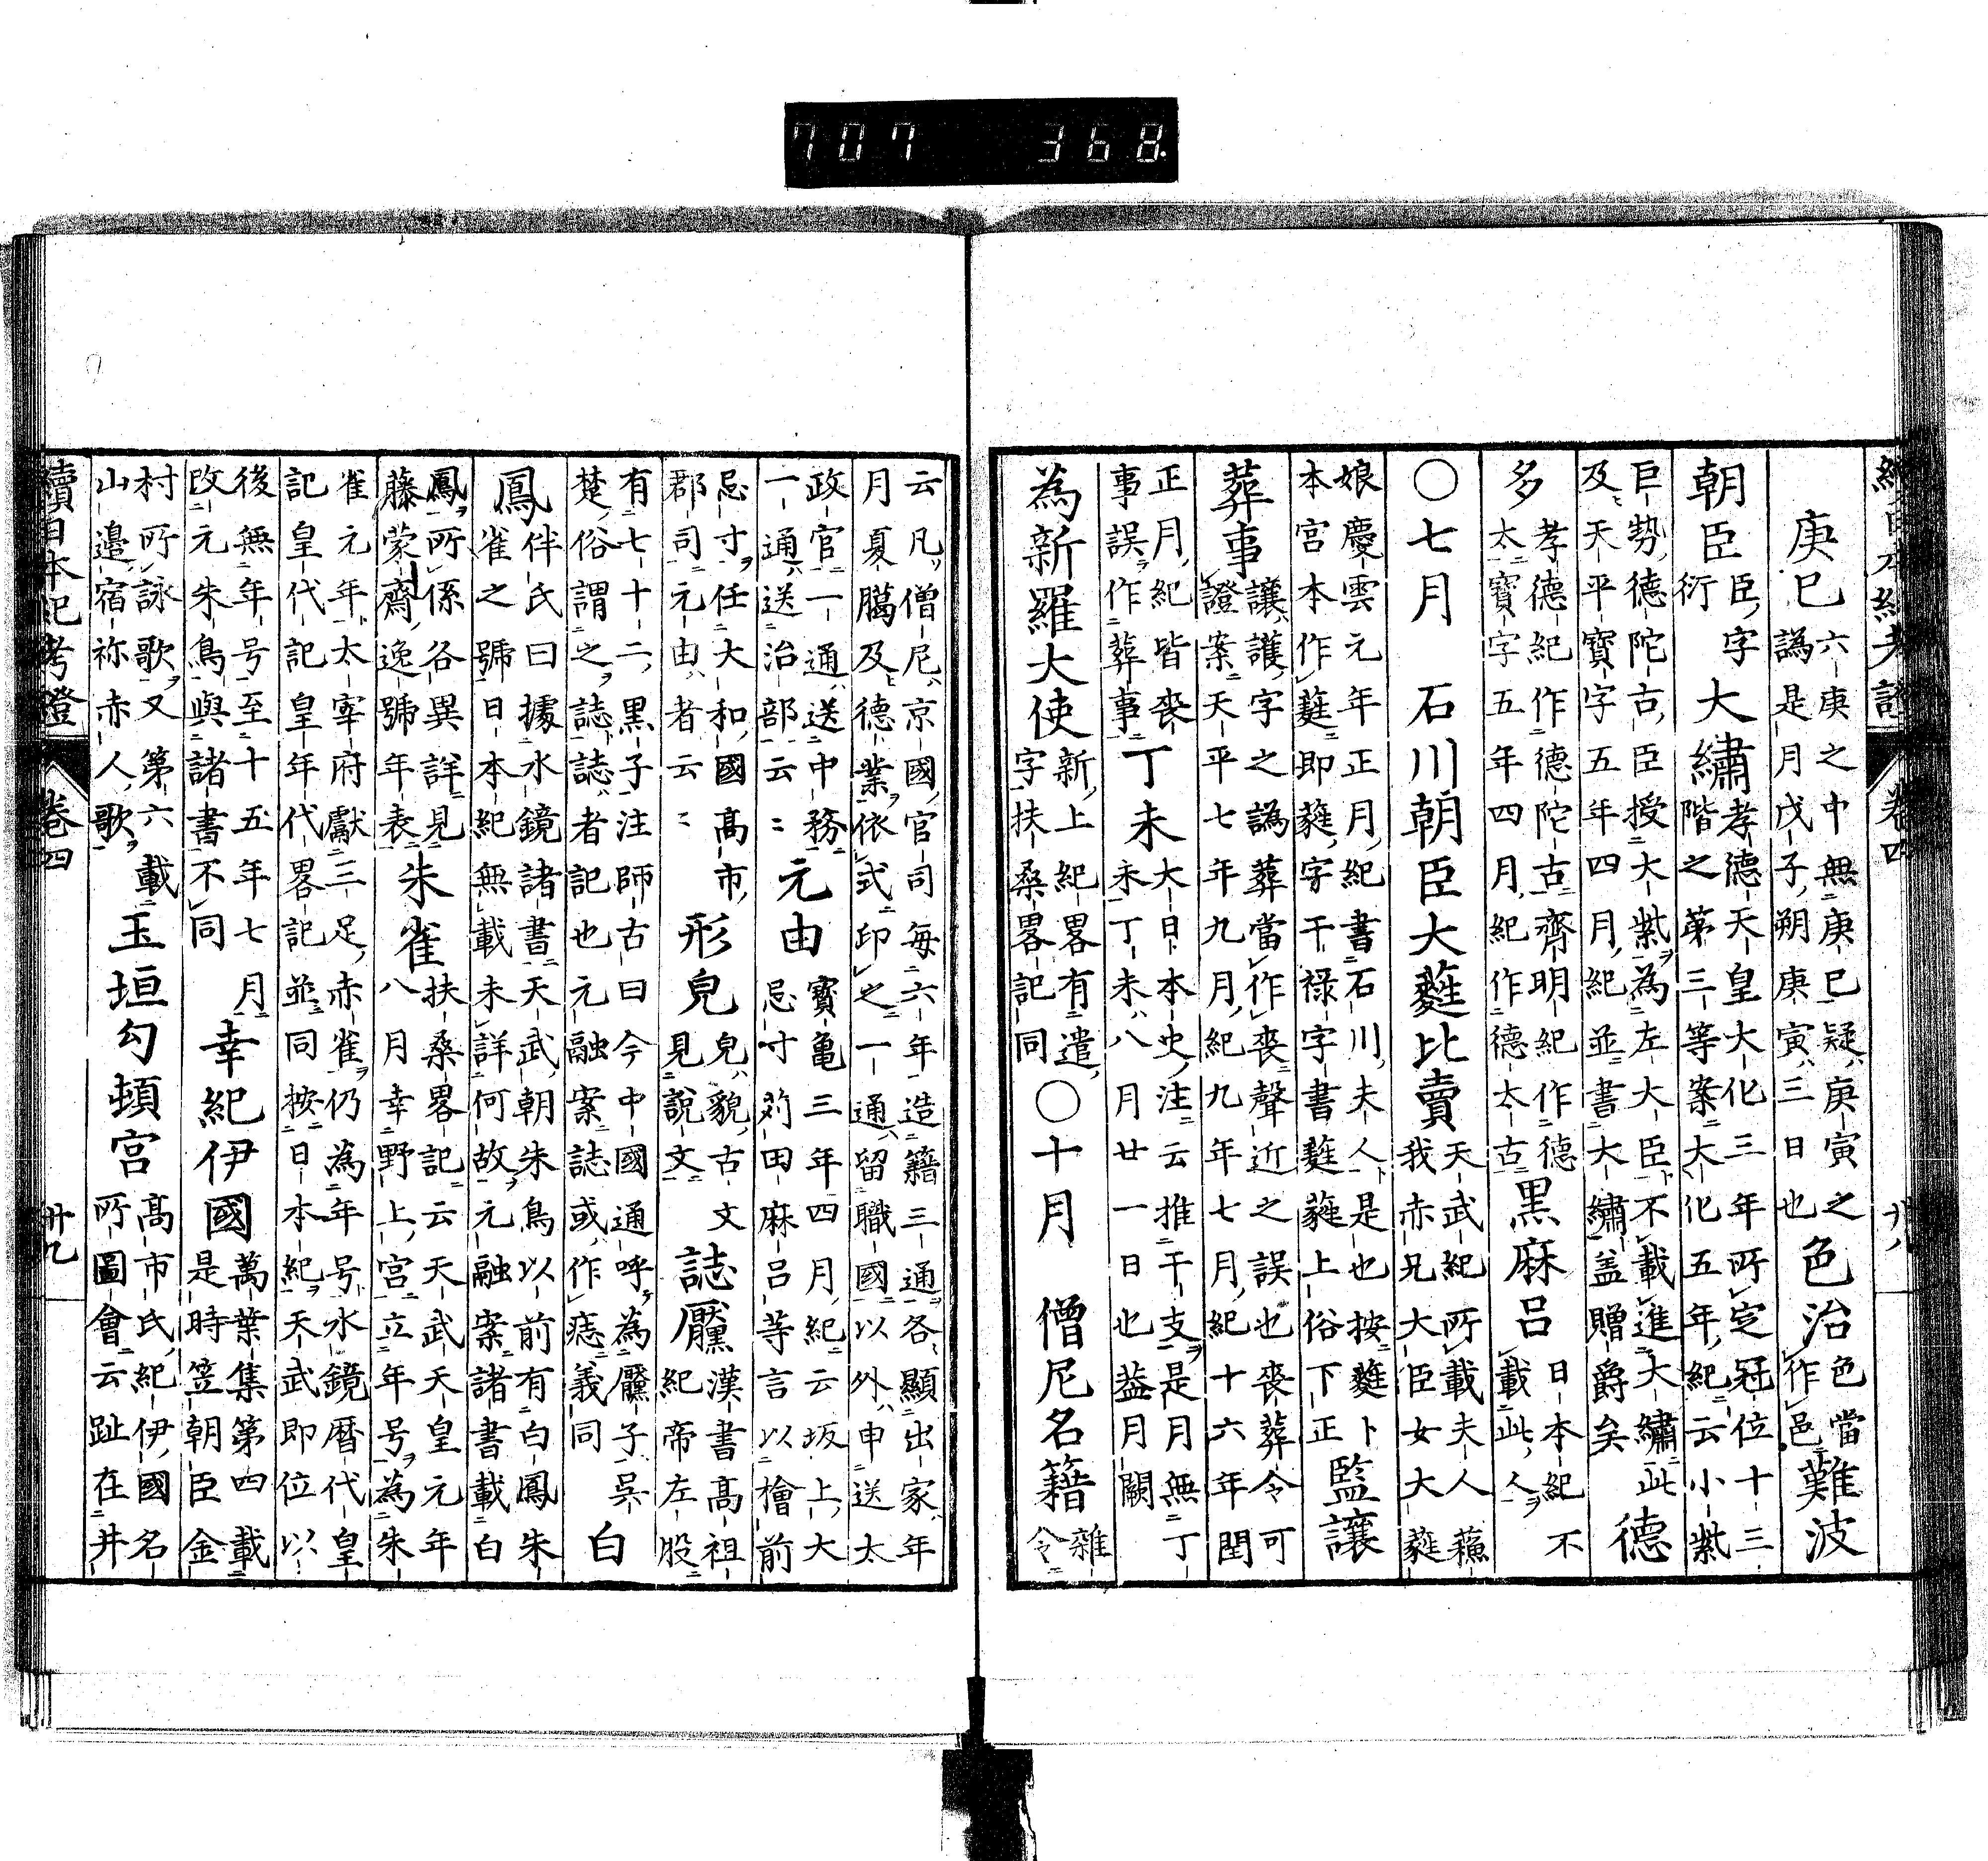 續日本紀考證 卷四 廿八
庚巳六庚之中無庚巳疑庚寅之譌是月戊子朔庚寅三日也色治色當作邑難波
朝臣臣字衍大繡孝德天皇大化三年所定冠位十三階之第三等案大化五年紀云小紫
巨勢德陀古臣授大紫為左大臣不載進大繡此及天平寶字五年四月紀並書大繡盖贈爵矣德
多孝德紀作德陀古齊明紀作德太寶字五年四月紀作德太古黒麻呂日本紀不載此人
〇七月 石川朝臣大蕤比賣天武紀所載夫人蘓我赤兄大臣女大蕤
娘慶雲元年正月紀書石川夫人是也按蕤卜本宮本作蕤即蕤字干禄字書蕤蕤上俗下正監讓
葬事讓護字之譌葬當作喪聲近之誤也喪葬令可證案天平七年九月紀九年七月紀十六年閏
正月紀皆喪事誤作葬事丁未大日本史注云推干支是月無丁未丁未八月廿一日也益月闕
為新羅大使新上紀畧有遣字扶桑畧記同〇十月 僧尼名籍雜令
云凡僧尼京國官司每六年造籍三通各顯出家年月夏臈及德業依式印之一通留職國以外申送太
政官一通送中務一通送治部云〻元由寳亀三年四月紀云坂上大忌寸苅田麻呂等言以檜前
忌寸任大和國高市郡司元由者云〻形皃皃貌古文見說文誌黶漢書高祖紀帝左股
有七十二黒子注師古曰今中國通呼為黶子吳楚俗謂之誌誌者記也元融案誌或作痣義同白
鳳伴氏曰據水鏡諸書天武朝朱鳥以前有白鳳朱雀之號日本紀無載未詳何故元融案諸書載白
鳳所係各異詳見藤蒙齋逸號年表朱雀扶桑畧記云天武天皇元年八月幸野上宮立年号為朱
雀元年太宰府獻三足赤雀仍為年号水鏡暦代皇記皇代記皇年代畧記並同按日本紀天武即位以
後無年号至十五年七月改元朱鳥與諸書不同幸紀伊國萬葉集第四載是時笠朝臣金
村所詠歌又第六載山邉宿祢赤人歌玉垣勾頓宮高市氏紀伊國名所圖會云趾在井
續日本紀考證 卷四 廿九